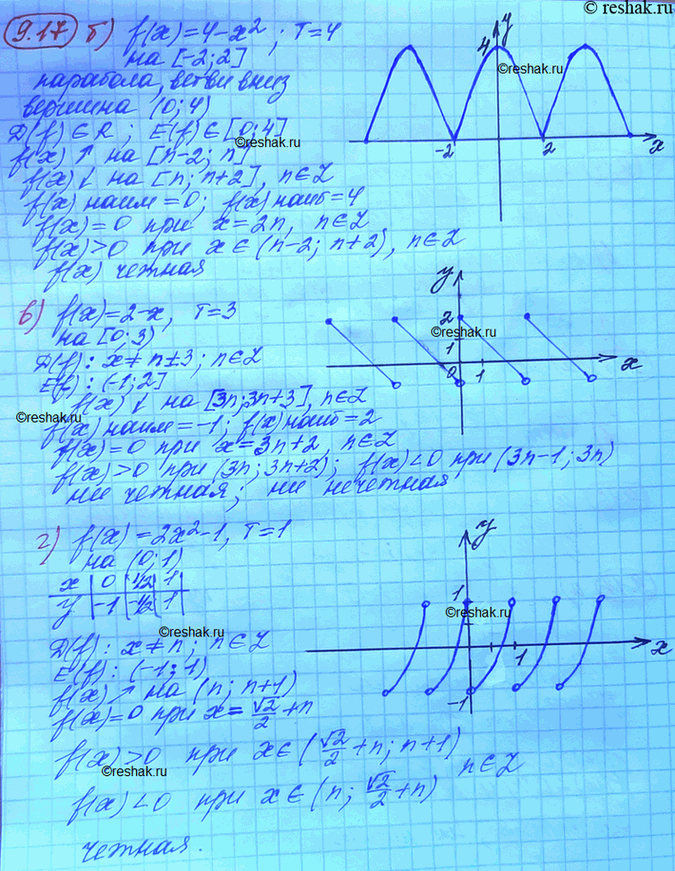 © reshak.ru
9.17 б) f(x)=4-x²; T=4
на [-2;2]
парабола, ветви вниз
вершина (0;4)
D(f)∈R; E(f)∈[0;4]
f(x)↑ на [n-2; n]
f(x)↓ на [n; n+2], n∈Z
f(x) наим=0; f(x) наиб=4
f(x)=0 при x=2n, n∈Z
f(x)>0 при x∈(n-2; n+2), n∈Z
f(x) четная
y
4
-2
2
x
©reshak.ru
©reshak.ru
в) f(x)=2-x, T=3
на [0;3)
D(f): x≠n±3; n∈Z
E(f): (-1;2]
f(x)↓ на [3n;3n+3], n∈Z
f(x) наим=-1; f(x) наиб=2
f(x)=0 при x=3n+2, n∈Z
f(x)>0 при (3n;3n+2); f(x)<0 при (3n-1;3n)
ни четная; ни нечетная
y
2
1
0
1
x
©reshak.ru
©reshak.ru
г) f(x)=2x²-1, T=1
на (0;1)
x | 0 | 1/2 | 1
y | -1 | -1/2 | 1
D(f): x≠n; n∈Z
E(f): (-1;1)
f(x)↗ на (n; n+1)
f(x)=0 при x=√2/2+n
f(x)>0 при x∈(√2/2+n; n+1)
n∈Z
f(x)<0 при x∈(n; √2/2+n)
четная.
y
1
-1
1
x
©reshak.ru
©reshak.ru
©reshak.ru